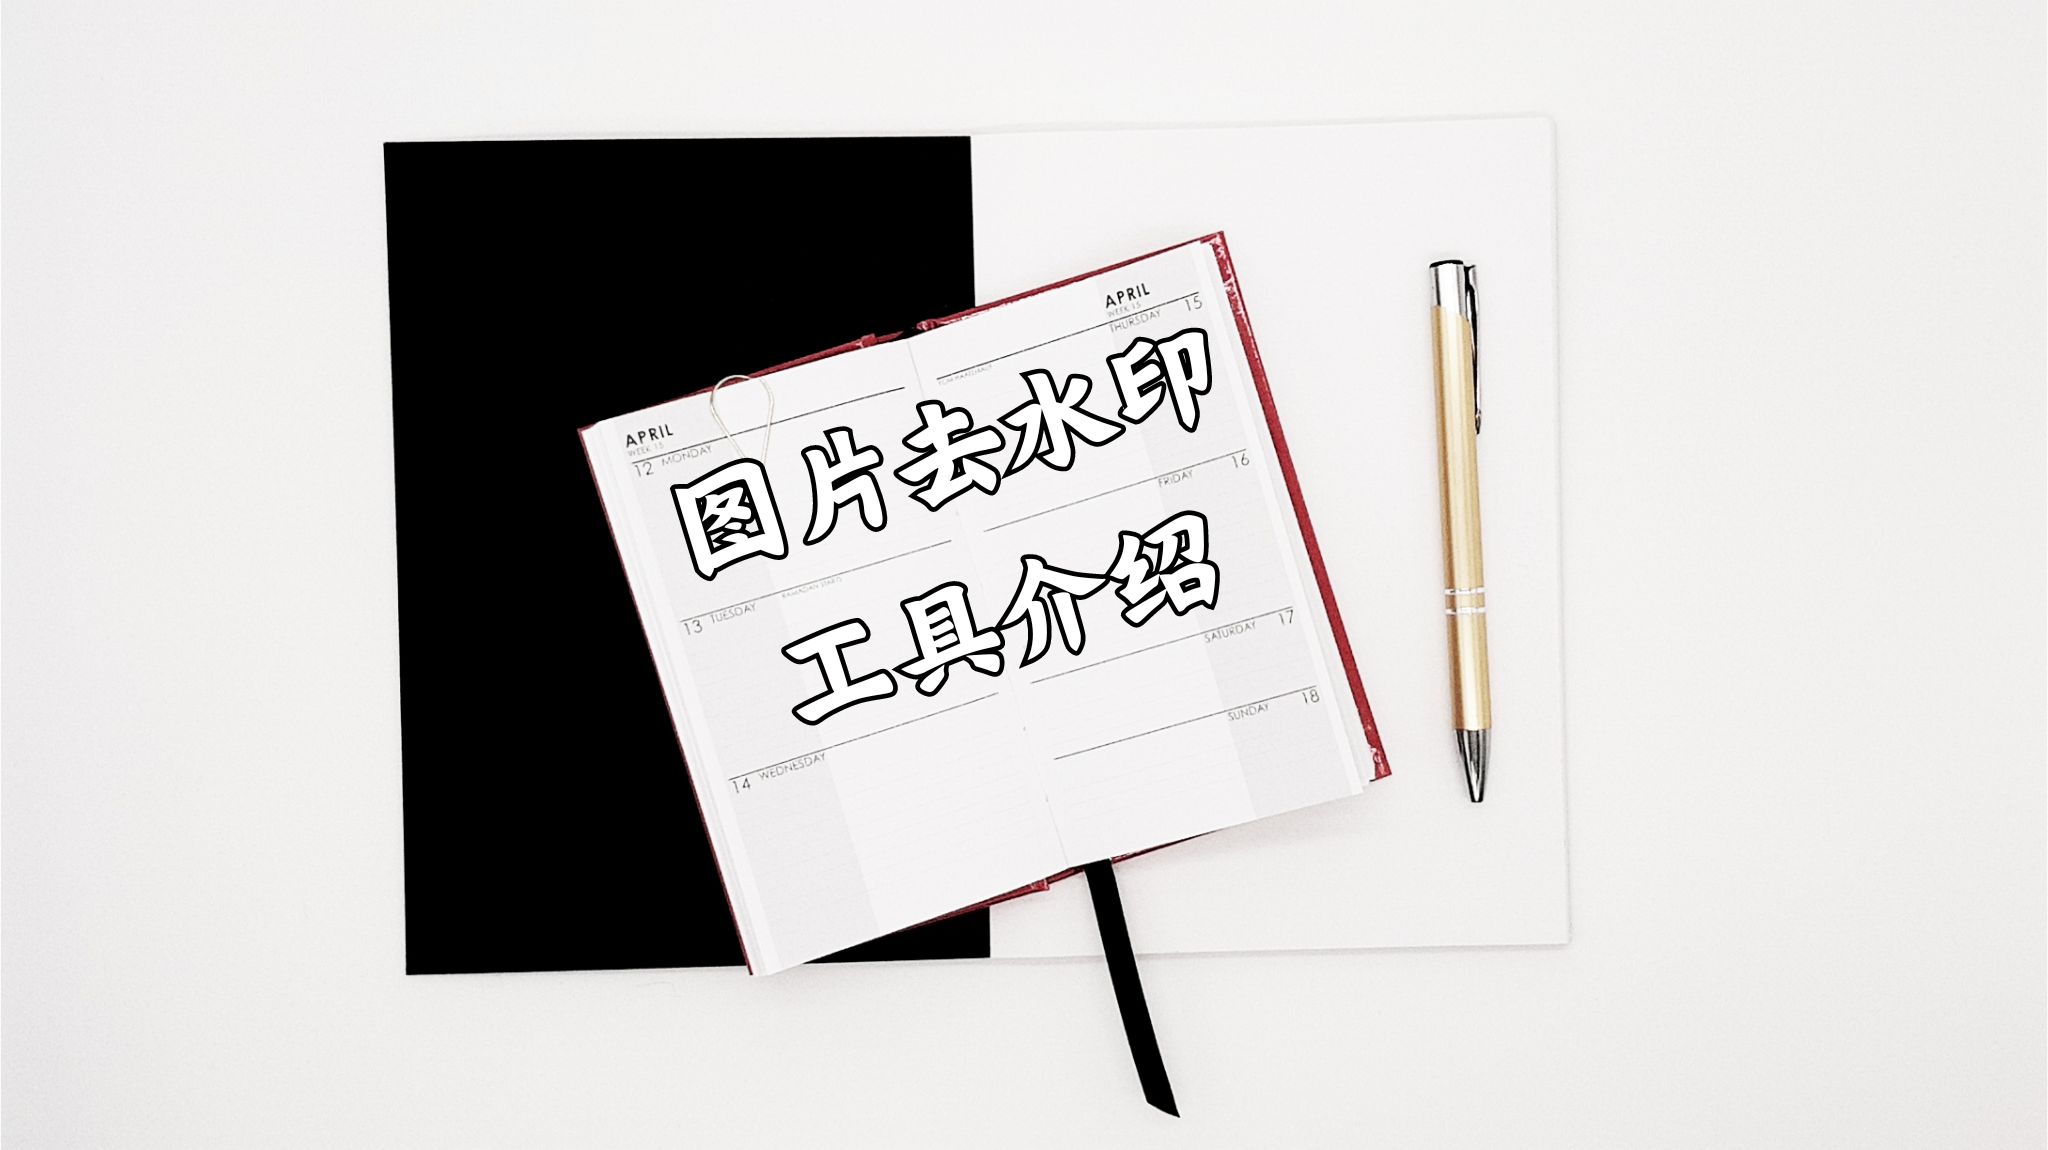 图片去水印
工具介绍
APRIL
WEEK 15
12 MONDAY
13 TUESDAY
RAMADAN STARTS
14 WEDNESDAY
APRIL
WEEK 15
THURSDAY 15
FRIDAY 16
SATURDAY 17
SUNDAY 18